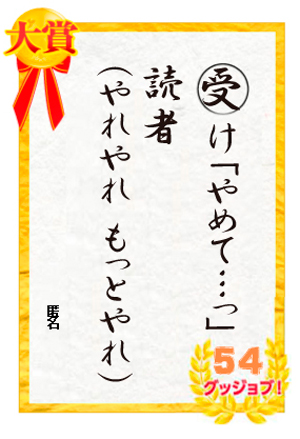 大賞
受け「やめて…っ」
読者
(やれやれ もっとやれ)
匿名
54
グッジョブ!